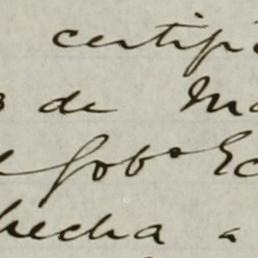 certif
de Ma
Gobº Ec
hecha a